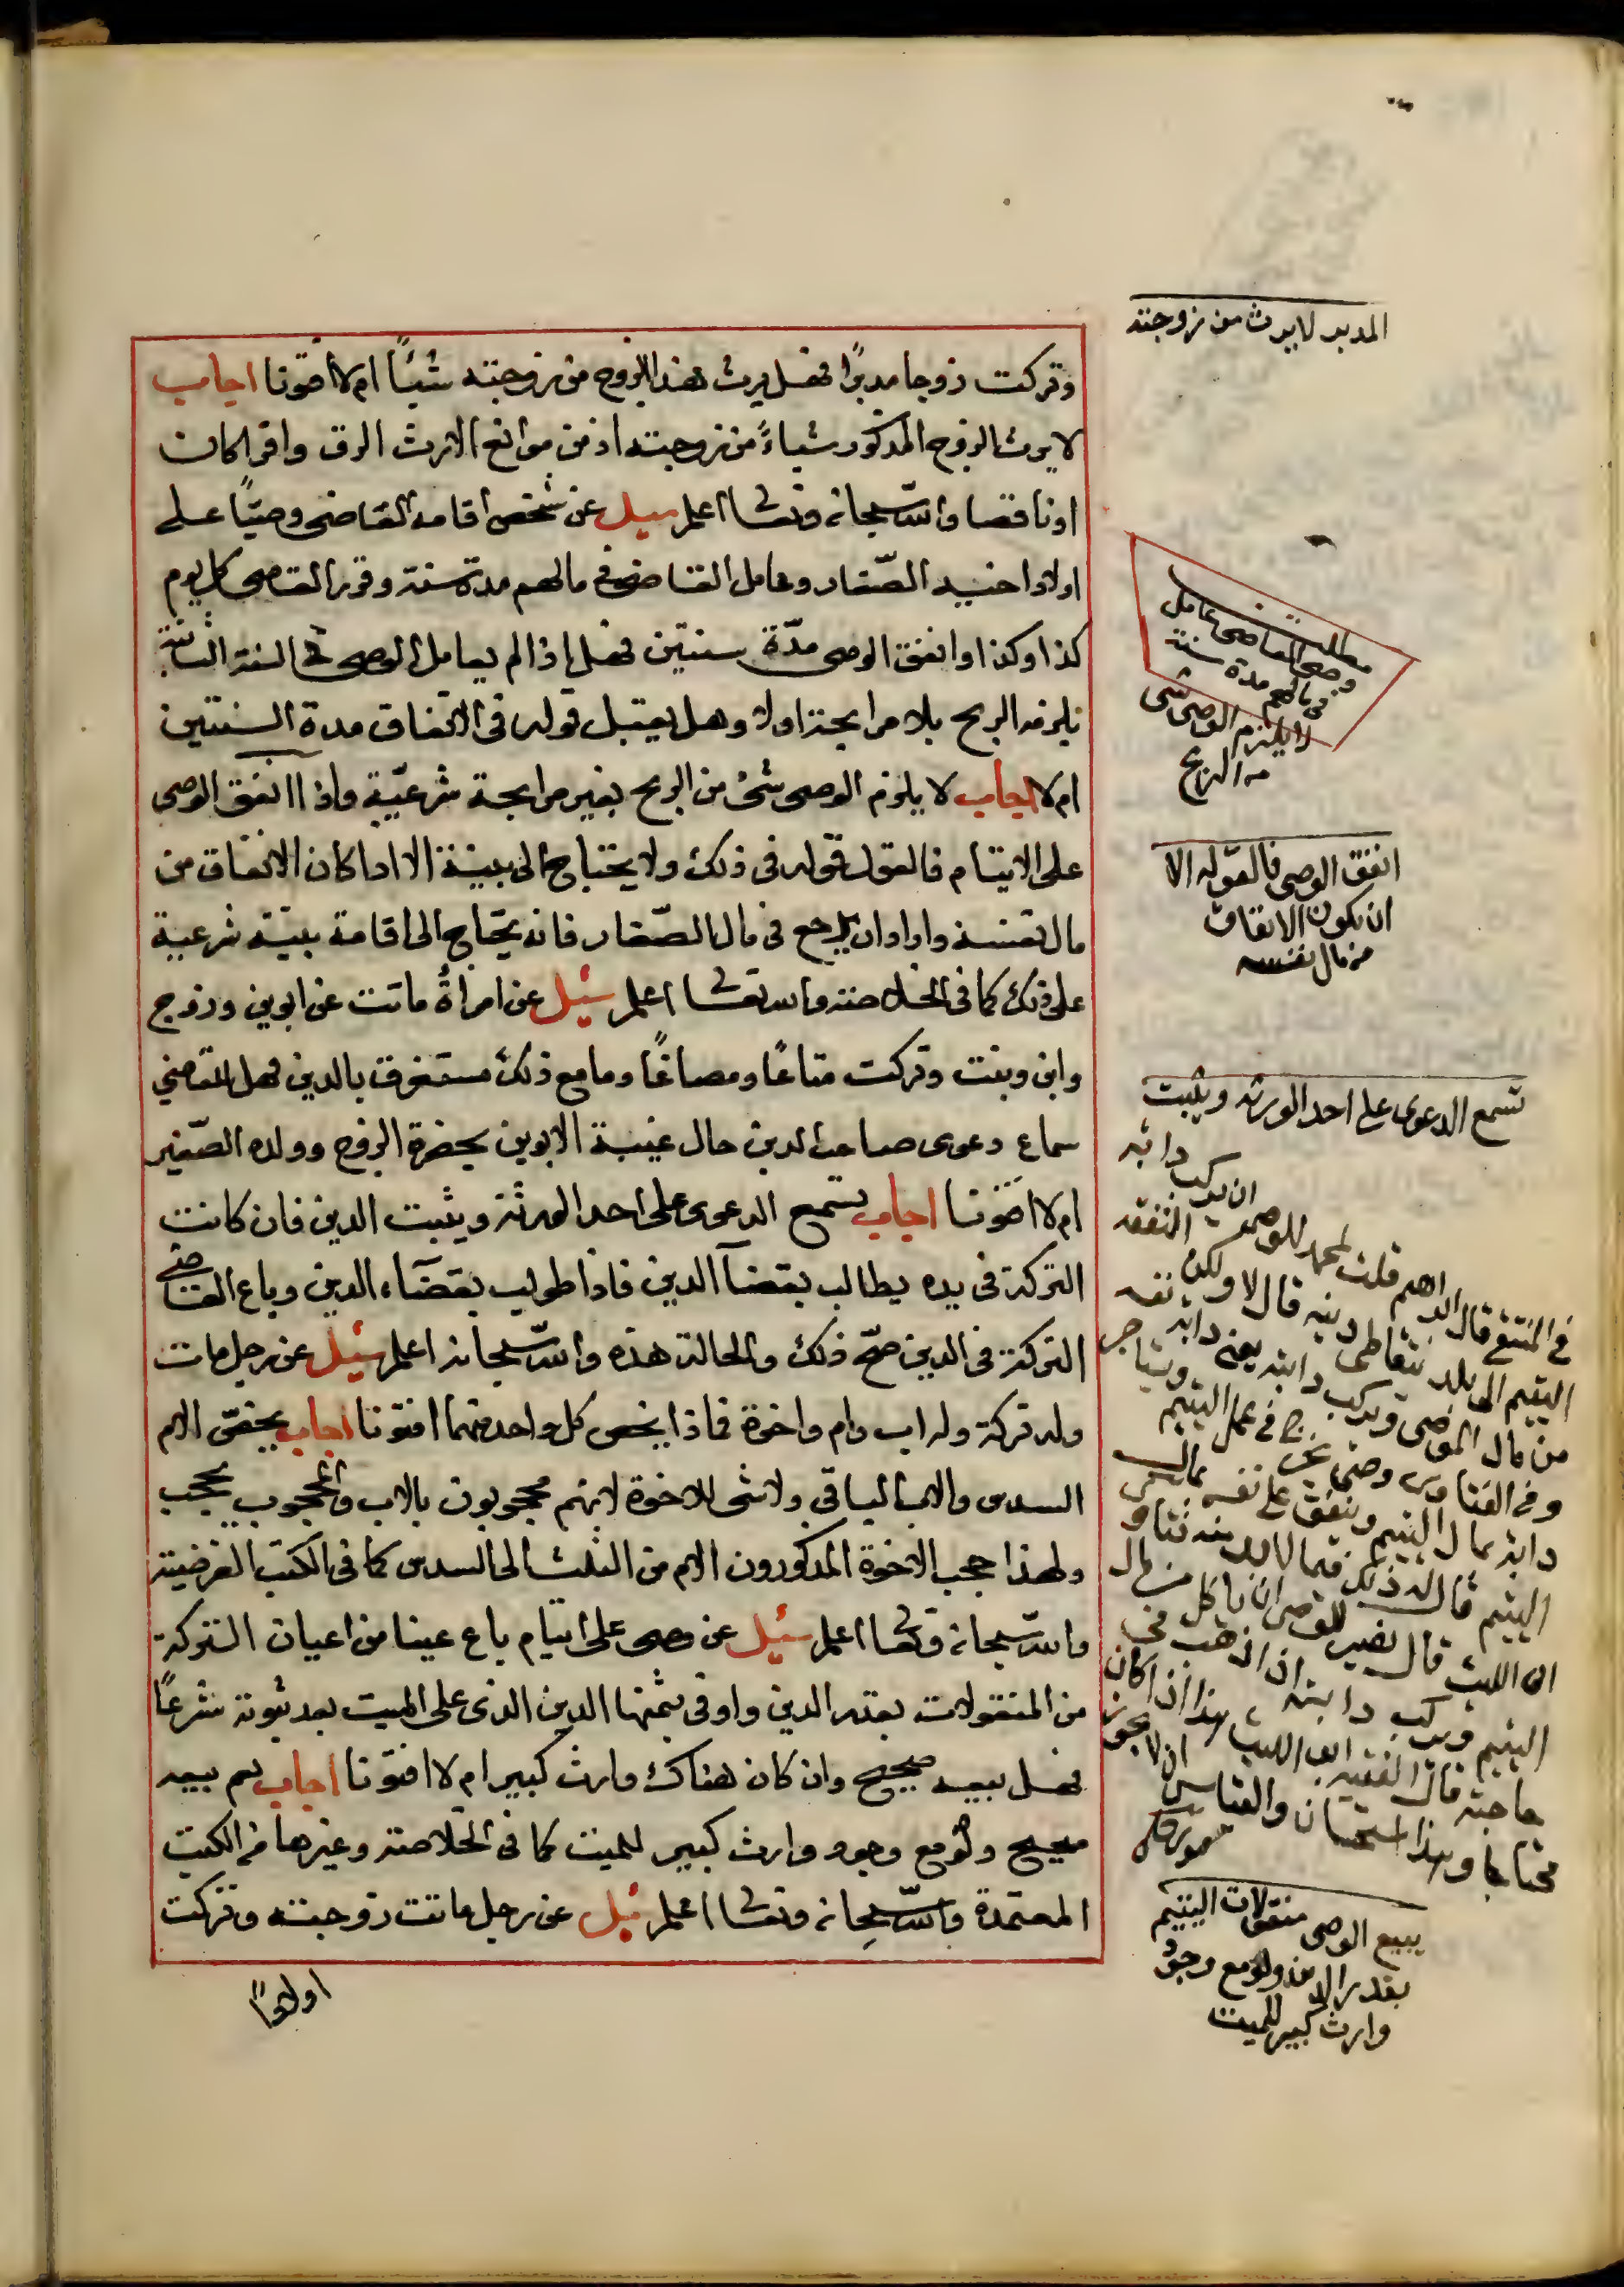 وتركت زوجا مدبرًا فهل يرث هذا الزوج من زوجته شيئًا ام لا افتونا اجاب
لا يرث الزوج المذكور شياءً من زوجته اذ من موانع الارث الرق وافرا كان
او ناقصا والله سبحانه وتعالى اعلم سيل عن شخص اقامه القاضى وصيًّا على
اولاد اخيه الصّغار وعامل القاضى فى مالهم مدة سنة وقرر القاضى كل يوم
كذا وكذا وانفق الوصى مدّة سنتين فهل اذا لم يعامل الوصى فى السنة الثانية
يلزمه الربح بلا مرابحة او لا وهل يقبل قوله فى الانفاق مدة السنتين
ام لا اجاب لا يلزم الوصى شئ من الربح بغير مرابحة شرعيّة واذا انفق الوصى
على الايتام فالقول قوله فى ذلك ولا يحتاج الى بينة الا اذا كان الانفاق من
مال نفسه واراد ان يرجع فى مال الصّغار فانه يحتاج الى اقامة بينة شرعية
على ذلك كما فى الخلاصة والله تعالى اعلم سئيل عن امرأة ماتت عن ابوين وزوج
وابن وبنت وتركت متاعًا ومصاغًا وما مع ذلك مستغرق بالدين فهل للقاضي
سماع دعوى صاحب الدين حال غيبة الابوين بحضرة الزوج وولده الصّغير
ام لا افتونا اجاب تسمع الدعوى على احد الورثة ويثبت الدين فان كانت
التركة فى يده يطالب بقضآ الدين فاذا طولب بقضآء الدين وباع القاضى
التركة فى الدين صحّ ذلك والحالة هذه والله سبحانه اعلم سئيل عن رجل مات
وله تركة وله اب وام واخوة فماذا يخص كل واحد منهما افتونا اجاب يخصّ الام
السدس والاب الباقى ولا شى للاخوة لانهم محجوبون بالاب والمحجوب يحجب
ولهذا حجب الاخوة المذكورون الام من الثلث الى السدس كما فى الكتب الفرضية
والله سبحانه وتعالى اعلم سئيل عن وصى على ايتام باع عينا من اعيان التركة
من المنقولات بقدر الدين واوفى بثمنها الدين الذى على الميت بعد ثبوته شرعًا
فهل بيعه صحيح وان كان هناك وارث كبير ام لا افتونا اجاب نعم بيعه
صحيح ولو مع وجود وارث كبير للميت كما فى الخلاصة وغيرها من الكتب
المعتمدة والله سبحانه وتعالى اعلم سئيل عن رجل ماتت زوجته وتركت
اولادًا
المدبر لا يرث من زوجته
مطلب
وصى القاضى عامل
فى مالهم مدة سنة
لا يلزم الوصى شى
من الربح
انفق الوصى فالقول له الا
ان يكون الانفاق
من مال نفسه
تسمع الدعوى على احد الورثة ويثبت
فى المنتقى قال ابراهيم قلت لمحمد للوصى ان يركب دابة
اليتيم الى بلد يتقاضى دينه قال لا ولكن النفقة
من مال الوصى ويركب دابته يعنى دابة نفسه
وفى الفتاوى وصى يخرج فى عمل اليتيم ويستاجر
دابة بمال اليتيم وينفق على نفسه
اليتيم قال له ذلك فيما لا بد منه
ابى الليث قال نصير للوصى ان ياكل من مال
اليتيم ويركب دابته اذا ذهب فى
حاجته قال الفقيه ابو الليث هذا اذا كان
محتاجا وهذا استحسان والقياس ان لا يجوز
يبيع الوصى منقولات اليتيم
بقدر الدين ولو مع وجود
وارث كبير للميت